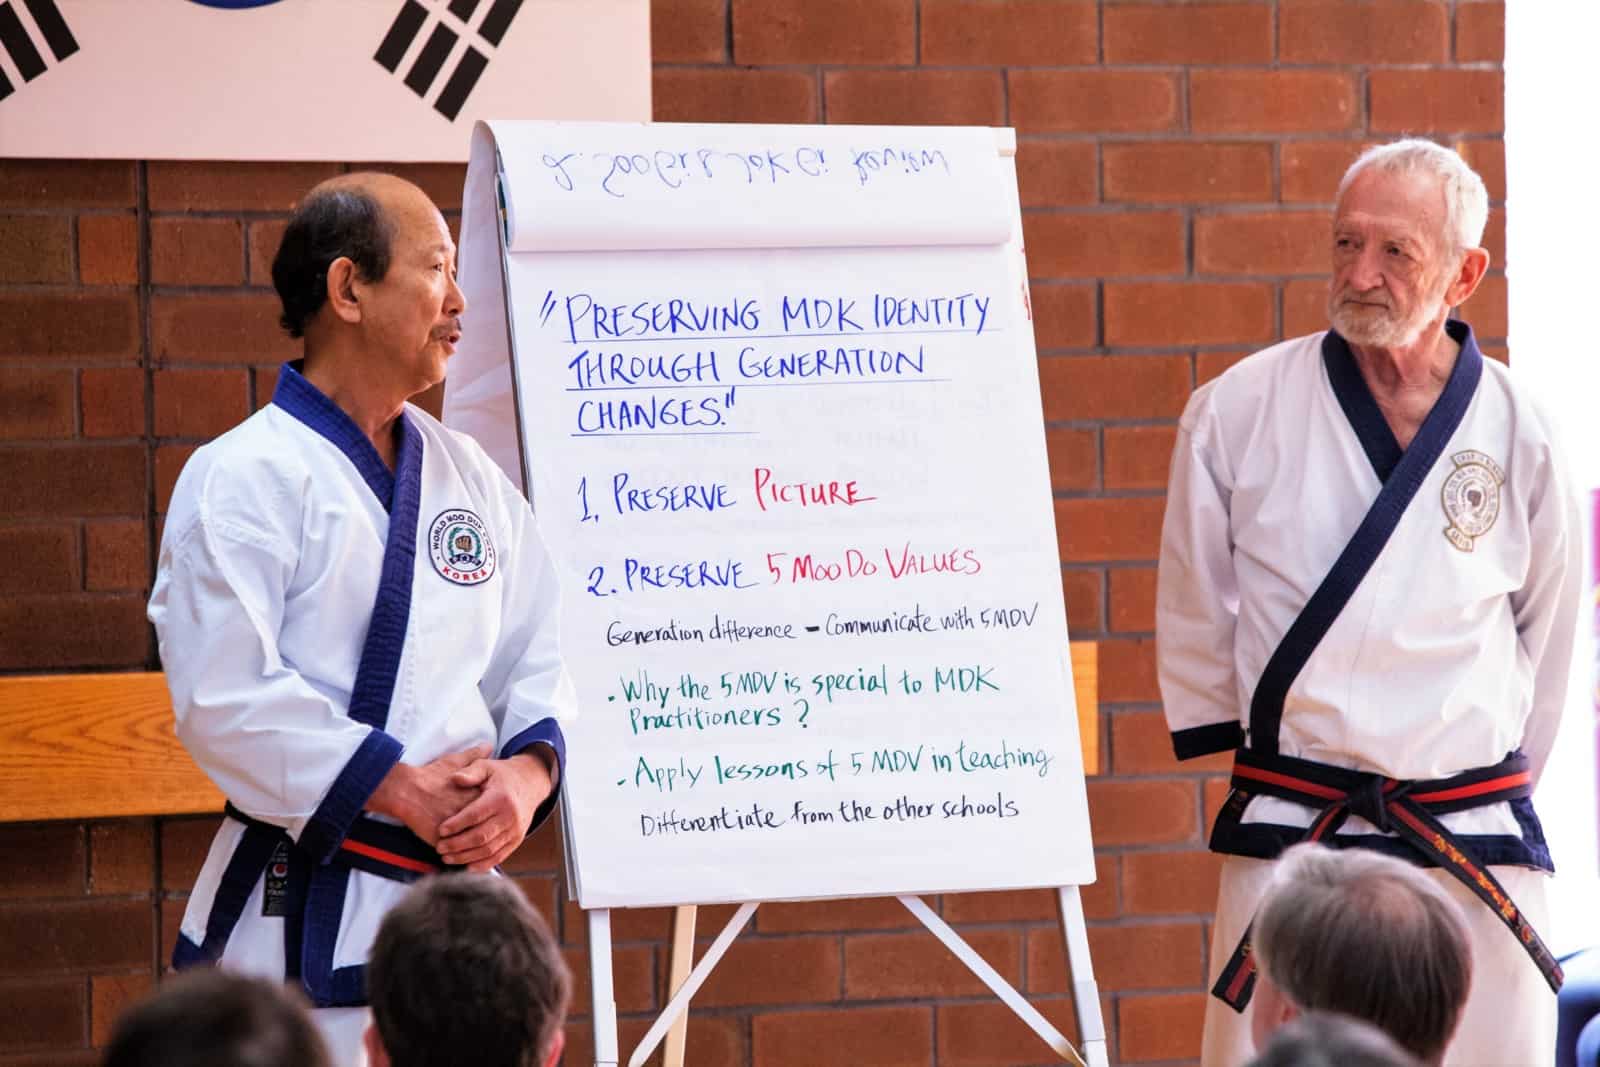 "PRESERVING MDK IDENTITY
THROUGH GENERATION
CHANGES."
1. PRESERVE PICTURE
2. PRESERVE 5 MOO DO VALUES
Generation difference - Communicate with 5MDV
. Why the 5MDV is special to MDK
Practitioners ?
. Apply lessons of 5 MDV in teaching
Differentiate from the other schools
WORLD MOO DUK
KOREA